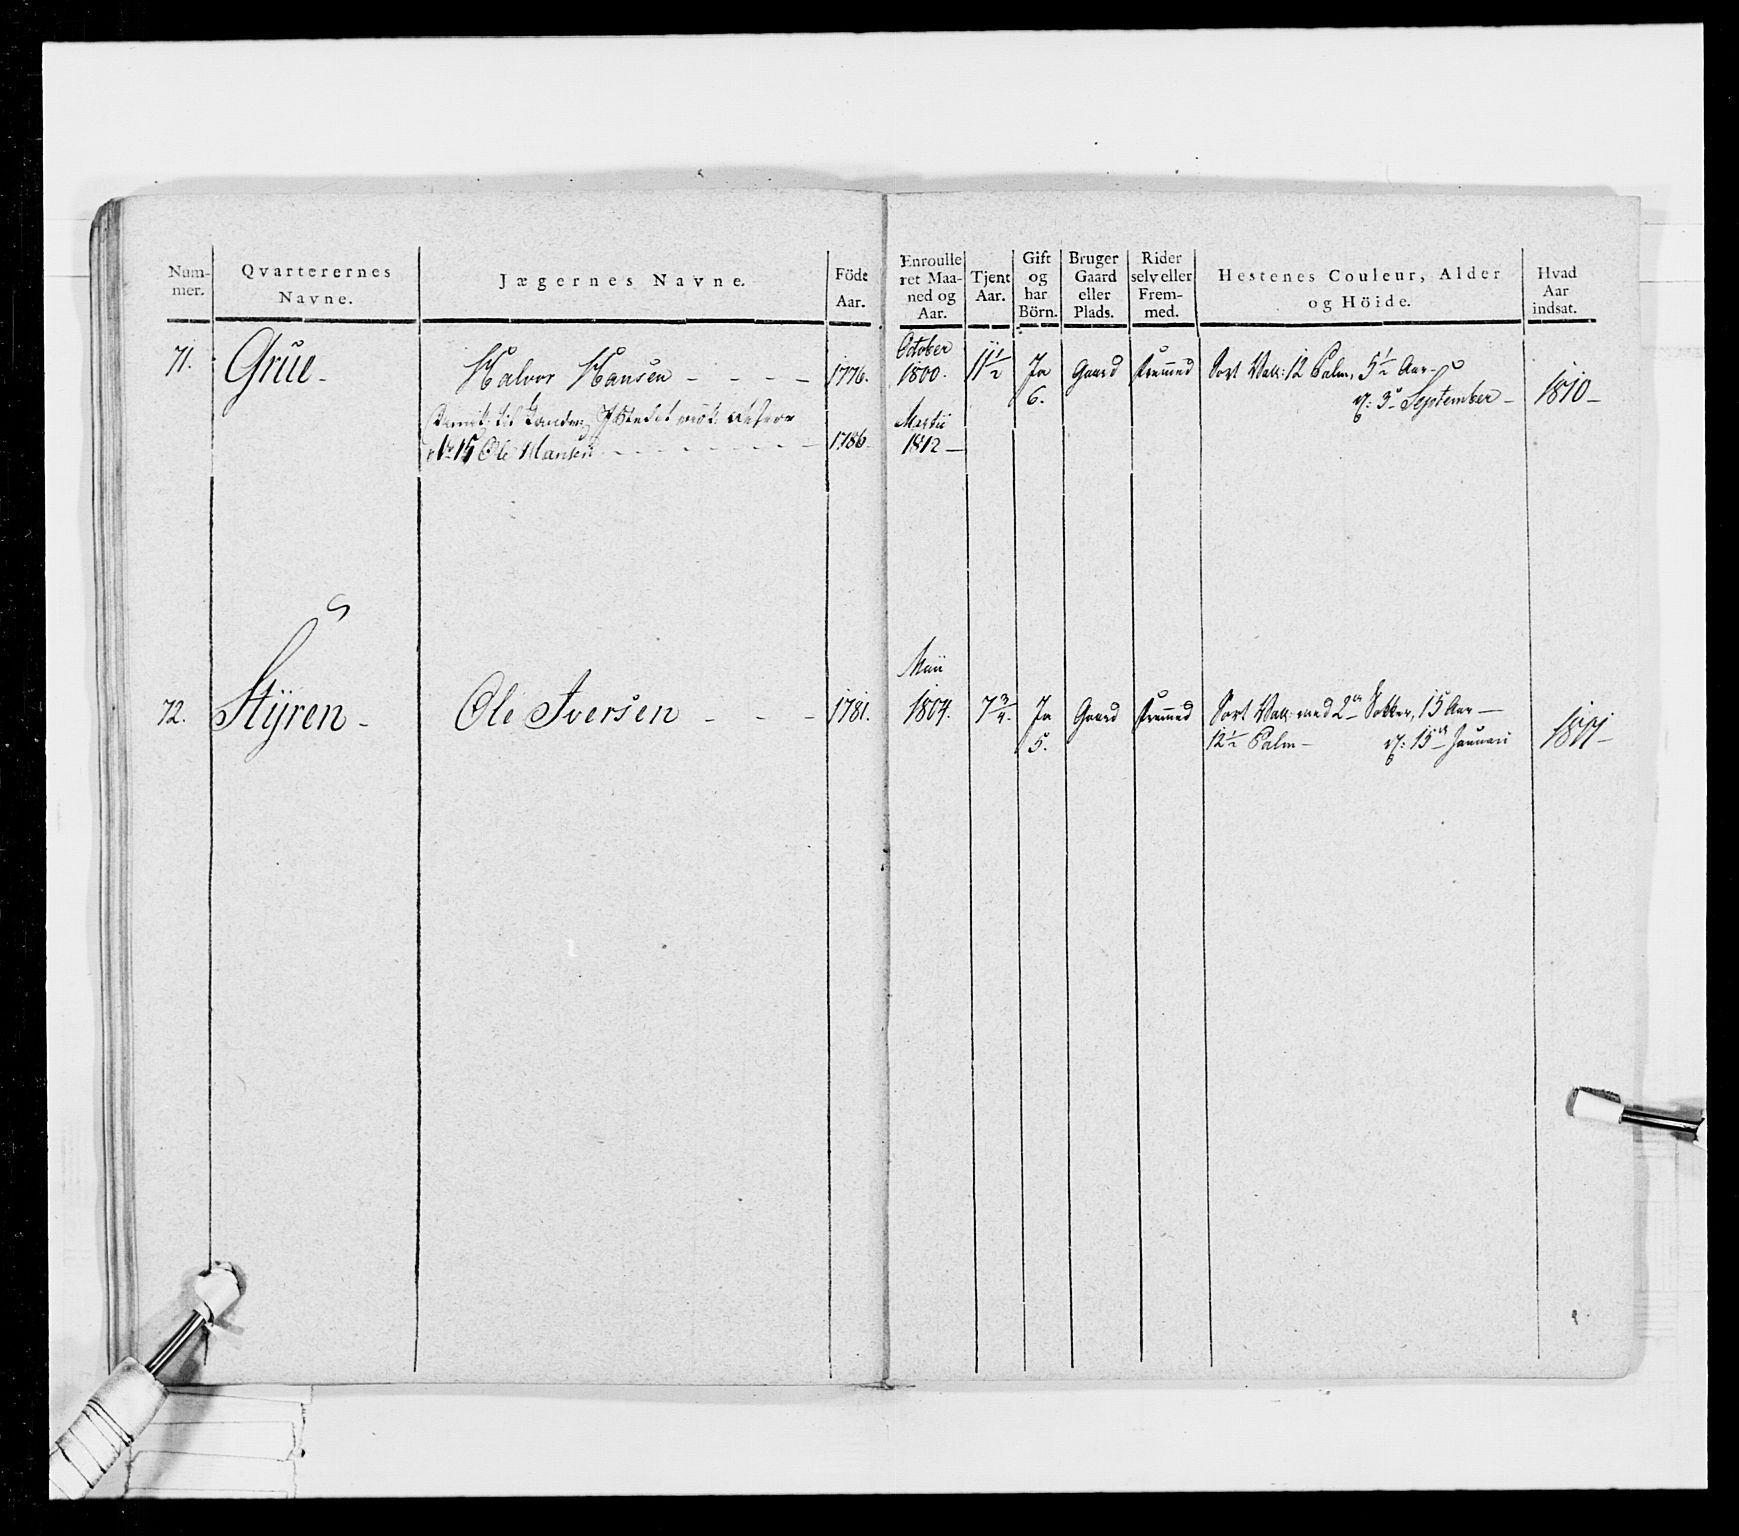 Num-
mer.
Qvarterernes
Navne.
Jægernes Navne.
Föde
Aar.
Enroulle
ret Maa-
ned og
Aar.
Tjent
Aar.
Gift
og
har
Börn.
Bruger
Gaard
eller
Plads.
Rider
selv eller
Frem-
med.
Hestenes Couleur, Alder
og Höide.
Hvad
Aar
indsat.
71. Grue - Halvor Hansen - - - - 1776. October 1800. 11½ Ja Gaard fremmed Sort Val: 12 Palm, 5½ Aar -
6. 3 September - 1810 -
til Stedet
No 15 Ole Hansen - - - - - - 1786 - Martii 1812 -
72. Stÿren - Ole Iversen - - - 1781. Maii 1804. 7¾. Ja Gaard fremmed Sort Val: med 2 Sokker, 15 Aar -
5. 12½ Palm - 15 Januari 1811 -